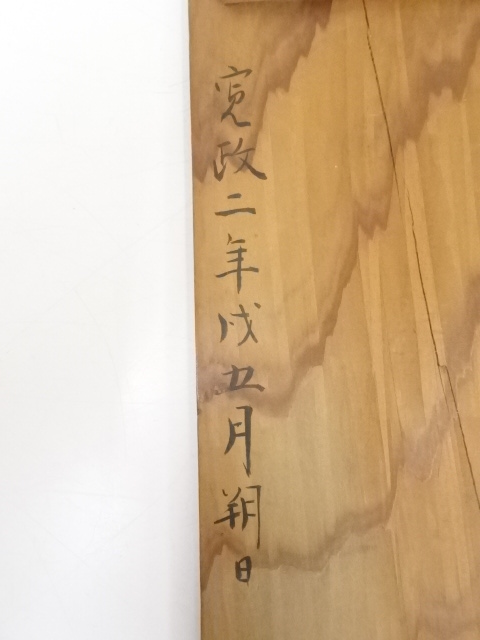 寛政二年戌五月朔日